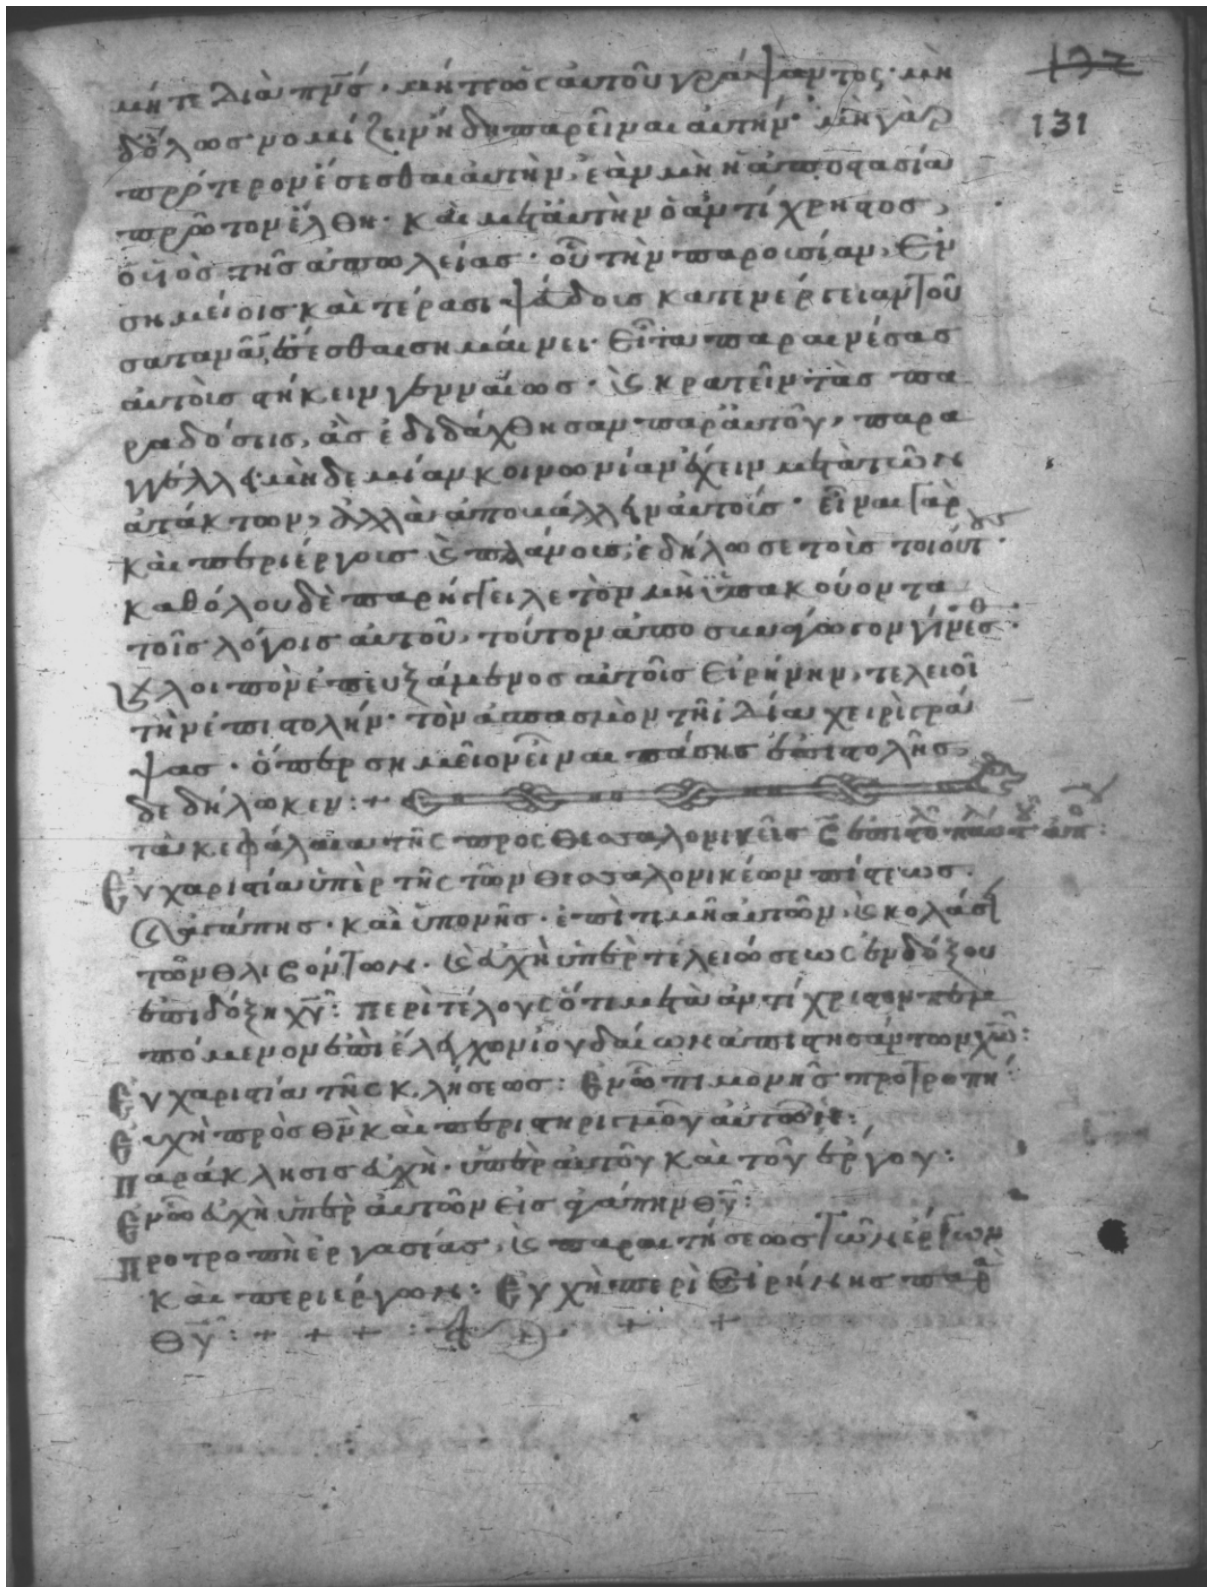 131
μήτε διὰ πν̅ς· μήτε ὡς αὐτοῦ γράψαντος· μὴ
δόλως νομίζειν ἤδη παρεῖναι αὐτήν· μὴ γὰρ
πρότερον ἔσεσθαι αὐτὴν, ἐὰν μὴ ἡ ἀποστασία
πρῶτον ἔλθη· καὶ μετ' αὐτὴν ὁ ἀντίχρηστος,
ὁ υἱὸς τῆς ἀπωλείας· οὗ τὴν παρουσίαν, ἐν
σημείοις καὶ τέρασι ψεύδοις κατ' ἐνέργειαν τοῦ
σατανᾶ, ἔσεσθαι σημαίνει· Εἶτα παραινέσας
αὐτοῖς στήκειν γενναίως· ϗ κρατεῖν τὰς πα
ραδόσεις, ἃς ἐδιδάχθησαν παρ' αὐτοῦ, παρα
γγέλλει μὴδεμίαν κοινωνίαν ἔχειν μετὰ τῶν
ἀτάκτων, ἀλλὰ ἀπαγγέλλειν αὐτοῖς· εἶναι γὰρ
καὶ περιέργοις ϗ πλάνοις, ἐδήλωσε τοὶς τοιούτους·
καθόλου δὲ παρήγγειλε τὸν μὴ ὑπακούοντα
τοῖς λόγοις αὐτοῦ, τοῦτον ἀποσυνάγωγον γίνεσθ·
ϗ λοιπὸν ἐπευξάμενος αὐτοῖς εἰρήνην, τελειοῖ
τὴν ἐπιστολήν· τὸν ἀσπασμὸν τῆ ἰδία χειρὶ γρά
ψας· ὅπερ σημεῖον εἶναι πάσης ἐπιστολῆς,
δεδήλωκεν:+
τὰ κεφάλαια τῆς προς θεσσαλονικεῖς β ἐπιστολ παύλου ἀπ:
Εὐχαριστία ὑπὲρ τῆς τῶν θεσσαλονικέων πίστεως
ϗ ἀγάπης· καὶ ὑπομνῆς· ἐπὶ τιμῆ αὐτῶν, ϗ κολάσει
τῶν θλιβόντων· ϗ εὐχὴ ὑπὲρ τελειώσεως ἐνδόξου
ἐπι δόξη χῦ: περὶ τέλους ὅτι μετὰ ἀντίχριστον πεμ
πόμενον ἐπὶ ἐλέγχον ἰουδαίων ἀπιστησάντων χῶ:
Εὐχαριστία τῆς κλήσεως: Ἐν ὧ ἐπιμονῆς προτροπή:
Εὐχὴ πρὸς θν̅ καὶ περι στηρισμοῦ αὐτῶν:
Παράκλησις εὐχὴ· ὑπὲρ αὐτοῦ καὶ τοῦ ἔργου:
Ἐν ὧ εὐχὴ ὑπὲρ αὐτῶν εἰς ἀγάπην θῦ:
Προτροπὴ ἐργασίας, ϗ παραιτήσεως τῶν ἀργῶν
καὶ περιέργων: Εὐχὴ περὶ εἰρήνης παρὰ
θῦ: + + + : + + +